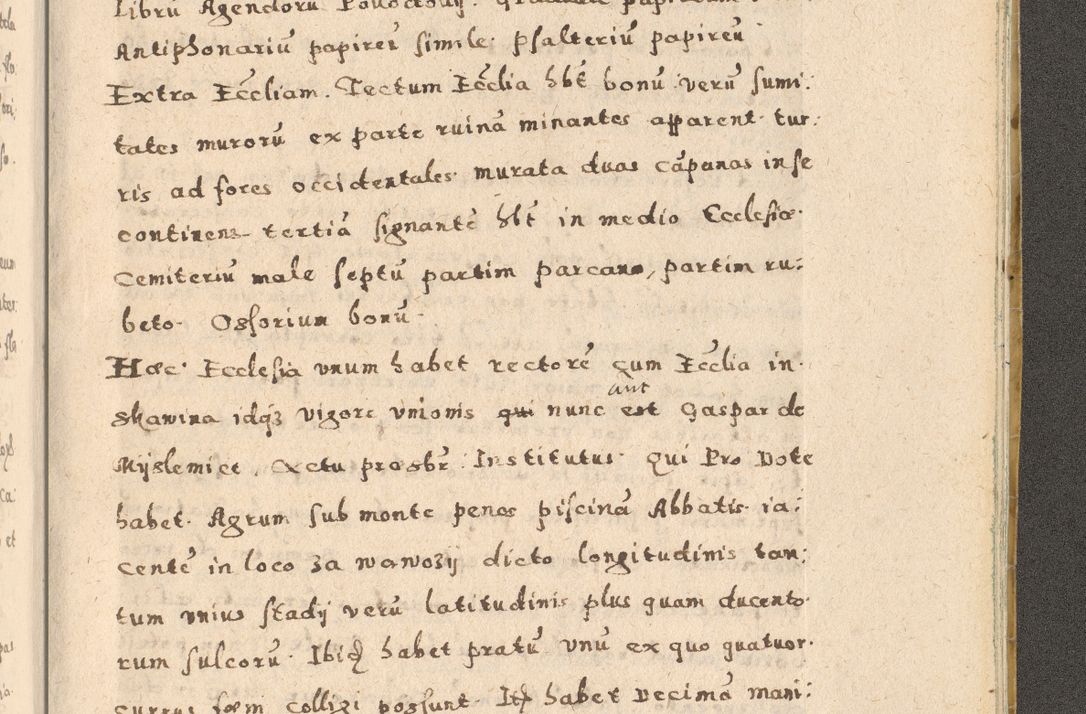 Librũ Agendorũ
Antiphonariũ papireũ simile: psalteriũ papireũ
Extra Eccliam. Tectum Ecclia hbt bonũ verũ sumi:
tates murorũ ex parte ruinã minantes apparent. tur:
ris ad fores occidentales. murata duas cãpanas in se
continens. tertiã signantẽ hbt in medio Ecclesiæ.
Cemiteriũ male septũ partim parcano, partim ru:
beto. Ossorium bonũ.
Hæc. Ecclesia vnum habet rectorẽ cum Ecclia in.
aut
skawina idq3 vigore vnionis qui nunc est Gaspar de
Myslemice. Actu præsbr. Institutus. Qui Pro Dote
habet. Agrum sub monte penes piscinã Abbatis. ia:
centẽ in loco za wawozy dicto longitudinis tan:
tum vnius stadij verũ latitudinis plus quam ducento.
rum sulcorũ. Ibid habet pratũ vnũ ex quo quatuor.
currus fœni colligi possunt. Itẽ habet Decimã mani: